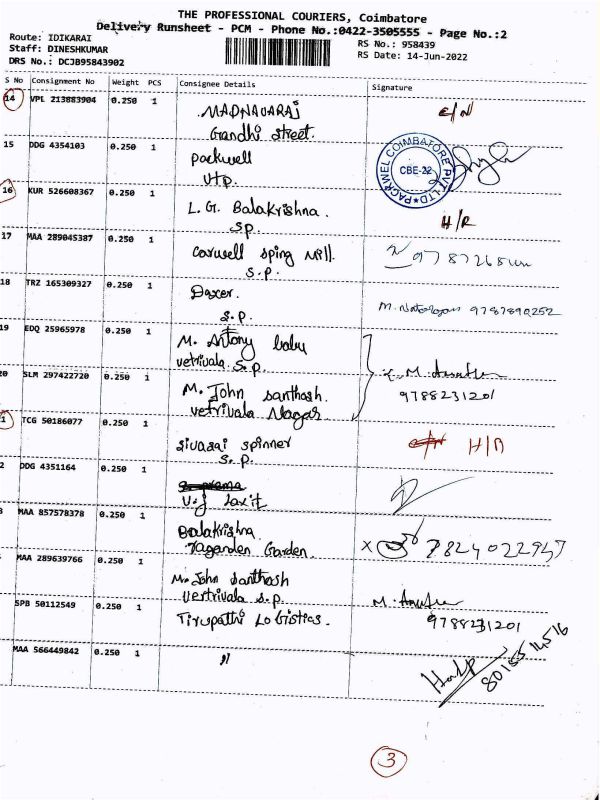 THE PROFESSIONAL COURIERS, Coimbatore
Delivery Runsheet - PCM - Phone No.:0422-3505555 - Page No.:2
Route: IDIKARAI
Staff: DINESHKUMAR
DRS No.: DCJB95843902
RS No.: 958439
RS Date: 14-Jun-2022
S No Consignment No Weight PCS Consignee Details Signature
14 VPL 213883904 0.250 1
Gandhi street.
15 DDG 4354103 0.250 1 packwell
CBE-22
16 KUR 526608367 0.250 1 L.G. Balakrishna.
S.P. H/R
17 MAA 289045387 0.250 1
S.P.
18 TRZ 165309327 0.250 1
S.P. 9787890252
19 EDQ 25965978 0.250 1 M. Antony babu
vetrivala S.P.
20 SLM 297422720 0.250 1 M. John santhosh.
vetrivala Nagar 9788231201
1 TCG 50186077 0.250 1 sivaraj spinner
S.P.
2 DDG 4351164 0.250 1
3 MAA 857578378 0.250 1 Balakrishna.
Garden. 7824022947
MAA 289639766 0.250 1 M. John Santhosh
S.P.
SPB 50112549 0.250 1 Tirupathi Logistics.
9788231201
MAA 566449842 0.250 1 "
3